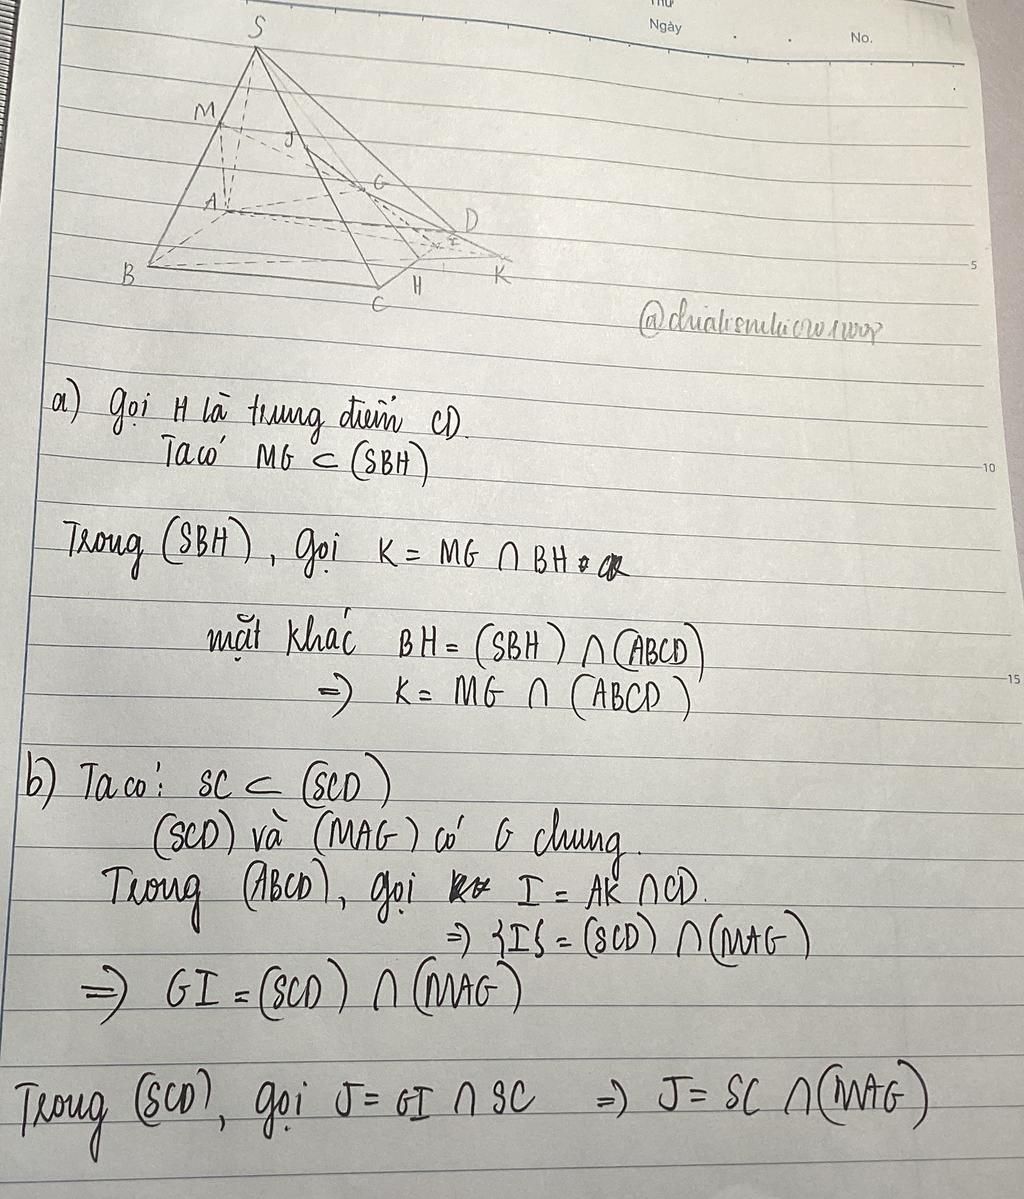 Thứ
Ngày
No.
S
M
J
G
A
D
I
B
H
K
C
5
a) gọi H là trung điểm CD.
Ta có MG ⊂ (SBH)
10
Trong (SBH), gọi K = MG ∩ BH
mặt khác BH = (SBH) ∩ (ABCD)
⇒ K = MG ∩ (ABCD)
15
b) Ta có: SC ⊂ (SCD)
(SCD) và (MAG) có G chung.
Trong (ABCD), gọi I = AK ∩ CD.
⇒ {I} = (SCD) ∩ (MAG)
⇒ GI = (SCD) ∩ (MAG)
Trong (SCD), gọi J = GI ∩ SC ⇒ J = SC ∩ (MAG)